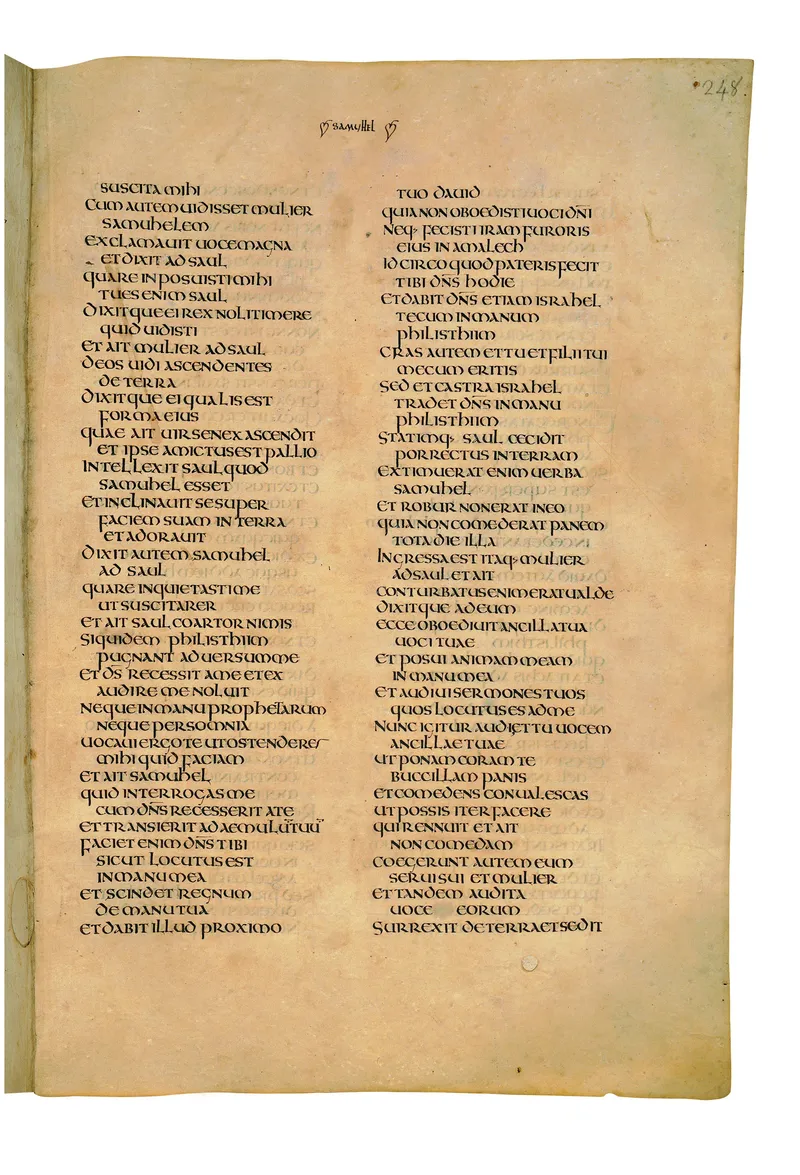 248.
SAMUHEL
SUSCITA MIHI
CUM AUTEM UIDISSET MULIER
SAMUHELEM
EXCLAMAUIT UOCE MAGNA
ET DIXIT AD SAUL
QUARE INPOSUISTI MIHI
TU ES ENIM SAUL
DIXITQUE EI REX NOLI TIMERE
QUID UIDISTI
ET AIT MULIER AD SAUL
DEOS UIDI ASCENDENTES
DE TERRA
DIXITQUE EI QUALIS EST
FORMA EIUS
QUAE AIT UIR SENEX ASCENDIT
ET IPSE AMICTUS EST PALLIO
INTELLEXIT SAUL QUOD
SAMUHEL ESSET
ET INCLINAUIT SE SUPER
FACIEM SUAM IN TERRA
ET ADORAUIT
DIXIT AUTEM SAMUHEL
AD SAUL
QUARE INQUIETASTI ME
UT SUSCITARER
ET AIT SAUL COARTOR NIMIS
SIQUIDEM PHILISTHIIM
PUGNANT ADUERSUM ME
ET D̅S̅ RECESSIT A ME ET EX
AUDIRE ME NOLUIT
NEQUE IN MANU PROPHETARUM
NEQUE PER SOMNIA
UOCAUI ERGO TE UT OSTENDERES
MIHI QUID FACIAM
ET AIT SAMUHEL
QUID INTERROGAS ME
CUM D̅N̅S̅ RECESSERIT A TE
ET TRANSIERIT AD AEMULU̅ TUU̅
FACIET ENIM D̅N̅S̅ TIBI
SICUT LOCUTUS EST
IN MANU MEA
ET SCINDET REGNUM
DE MANU TUA
ET DABIT ILLUD PROXIMO
TUO DAUID
QUIA NON OBOEDISTI UOCI D̅N̅I̅
NEQ· FECISTI IRAM FURORIS
EIUS IN AMALECH
IDCIRCO QUOD PATERIS FECIT
TIBI D̅N̅S̅ HODIE
ET DABIT D̅N̅S̅ ETIAM ISRAHEL
TECUM IN MANUM
PHILISTHIIM
CRAS AUTEM ET TU ET FILII TUI
MECUM ERITIS
SED ET CASTRA ISRAHEL
TRADET D̅N̅S̅ IN MANU
PHILISTHIIM
STATIMQ· SAUL CECIDIT
PORRECTUS IN TERRAM
EXTIMUERAT ENIM UERBA
SAMUHEL
ET ROBUR NON ERAT IN EO
QUIA NON COMEDERAT PANEM
TOTA DIE ILLA
INGRESSA EST ITAQ· MULIER
AD SAUL ET AIT
CONTURBATUS ENIM ERAT UALDE
DIXITQUE AD EUM
ECCE OBOEDIUIT ANCILLA TUA
UOCI TUAE
ET POSUI ANIMAM MEAM
IN MANU MEA
ET AUDIUI SERMONES TUOS
QUOS LOCUTUS ES AD ME
NUNC IGITUR AUDI ET TU UOCEM
ANCILLAE TUAE
UT PONAM CORAM TE
BUCCILLAM PANIS
ET COMEDENS CONUALESCAS
UT POSSIS ITER FACERE
QUI RENNUIT ET AIT
NON COMEDAM
COEGERUNT AUTEM EUM
SERUI SUI ET MULIER
ET TANDEM AUDITA
UOCE EORUM
SURREXIT DE TERRA ET SEDIT